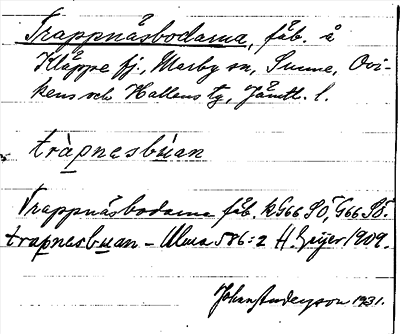 Trappnäsbodarna, fäb. å
Kläppe fj., Marby sn, Sunne, Ovi-
kens och Hallens tg, Jämtl. l.
tràpnesbu̠an
Trappnäsbodarna fäb. kG66 SO, G66 SO.
trapnesbuan – Ulma 586:2 H. Geijer 1909.
Johan Anderson 1931.